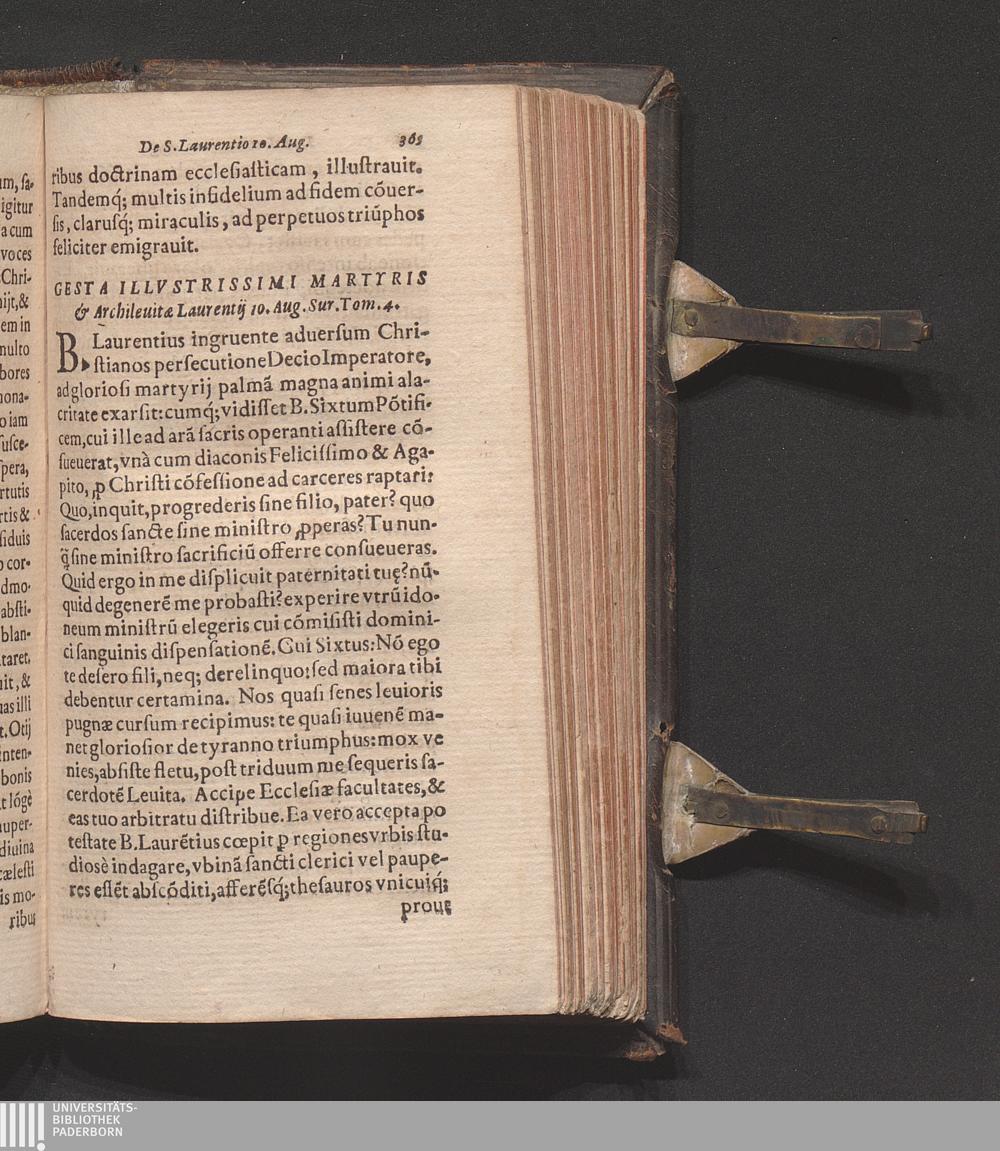 um, ſa-
igitur
a cum
voces
Chri-
nijt, &
em in
multo
bores
nona-
o iam
ſuſce-
ſpera,
rtutis
rtis &
ſiduis
o cor-
dmo-
abſti-
blan-
taret.
nit, &
uas illi
t. Otij
inten-
bonis
t lógè
nuper-
diuina
cæleſti
is mo-
ribus
De S. Laurentio 10. Aug. 365
ribus doctrinam eccleſiaſticam, illuſtrauit.
Tandemq́; multis infidelium ad fidem cóuer-
ſis, claruſq́; miraculis, ad perpetuos triũphos
feliciter emigrauit.
GESTA ILLVSTRISSIMI MARTYRIS
& Archileuitæ Laurentij 10. Aug. Sur. Tom. 4.
B. Laurentius ingruente aduerſum Chri-
ſtianos perſecutione Decio Imperatore,
ad glorioſi martyrij palmã magna animi ala-
critate exarſit: cumq́; vidiſſet B. Sixtum Pótifi-
cem, cui ille ad arã ſacris operanti aſſiſtere cõ-
ſueuerat, vnà cum diaconis Feliciſſimo & Aga-
pito, ꝓ Chriſti cófeſſione ad carceres raptari:
Quo, inquit, progrederis ſine filio, pater? quo
ſacerdos ſancte ſine miniſtro ꝓperas? Tu nun-
q̃ ſine miniſtro ſacrificiũ offerre conſueueras.
Quid ergo in me diſplicuit paternitati tuę? nũ-
quid degenerẽ me probaſti? experire vtrũ ido-
neum miniſtrũ elegeris cui cómiſiſti domini-
ci ſanguinis diſpenſationẽ. Cui Sixtus: Nó ego
te deſero fili, neq; derelinquo: ſed maiora tibi
debentur certamina. Nos quaſi ſenes leuioris
pugnæ curſum recipimus: te quaſi iuuenẽ ma-
net glorioſior de tyranno triumphus: mox ve
nies, abſiſte fletu, poſt triduum me ſequeris ſa-
cerdotẽ Leuita. Accipe Eccleſiæ facultates, &
eas tuo arbitratu diſtribue. Ea vero accepta po
teſtate B. Laurẽtius cœpit ꝑ regiones vrbis ſtu-
dioſè indagare, vbinã ſancti clerici vel paupe-
res eſſẽt abſcóditi, afferẽſq́; theſauros vnicuiq́;
prout
UNIVERSITÄTS-
BIBLIOTHEK
PADERBORN